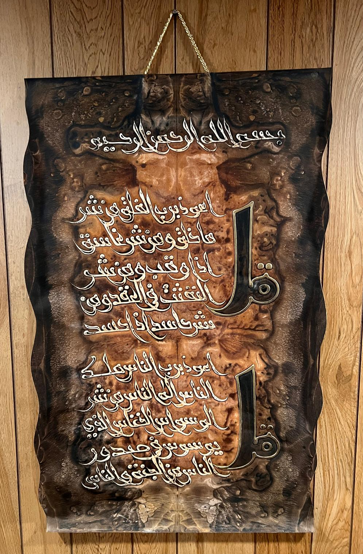 بسم الله الرحمن الرحيم
قل
اعوذ برب الفلق من شر
ما خلق ومن شر غاسق
اذا وقب ومن شر
النفثت في العقد ومن
شر حاسد اذا حسد
قل
اعوذ برب الناس ملك
الناس اله الناس من شر
الوسواس الخناس الذي
يوسوس في صدور
الناس من الجنة والناس